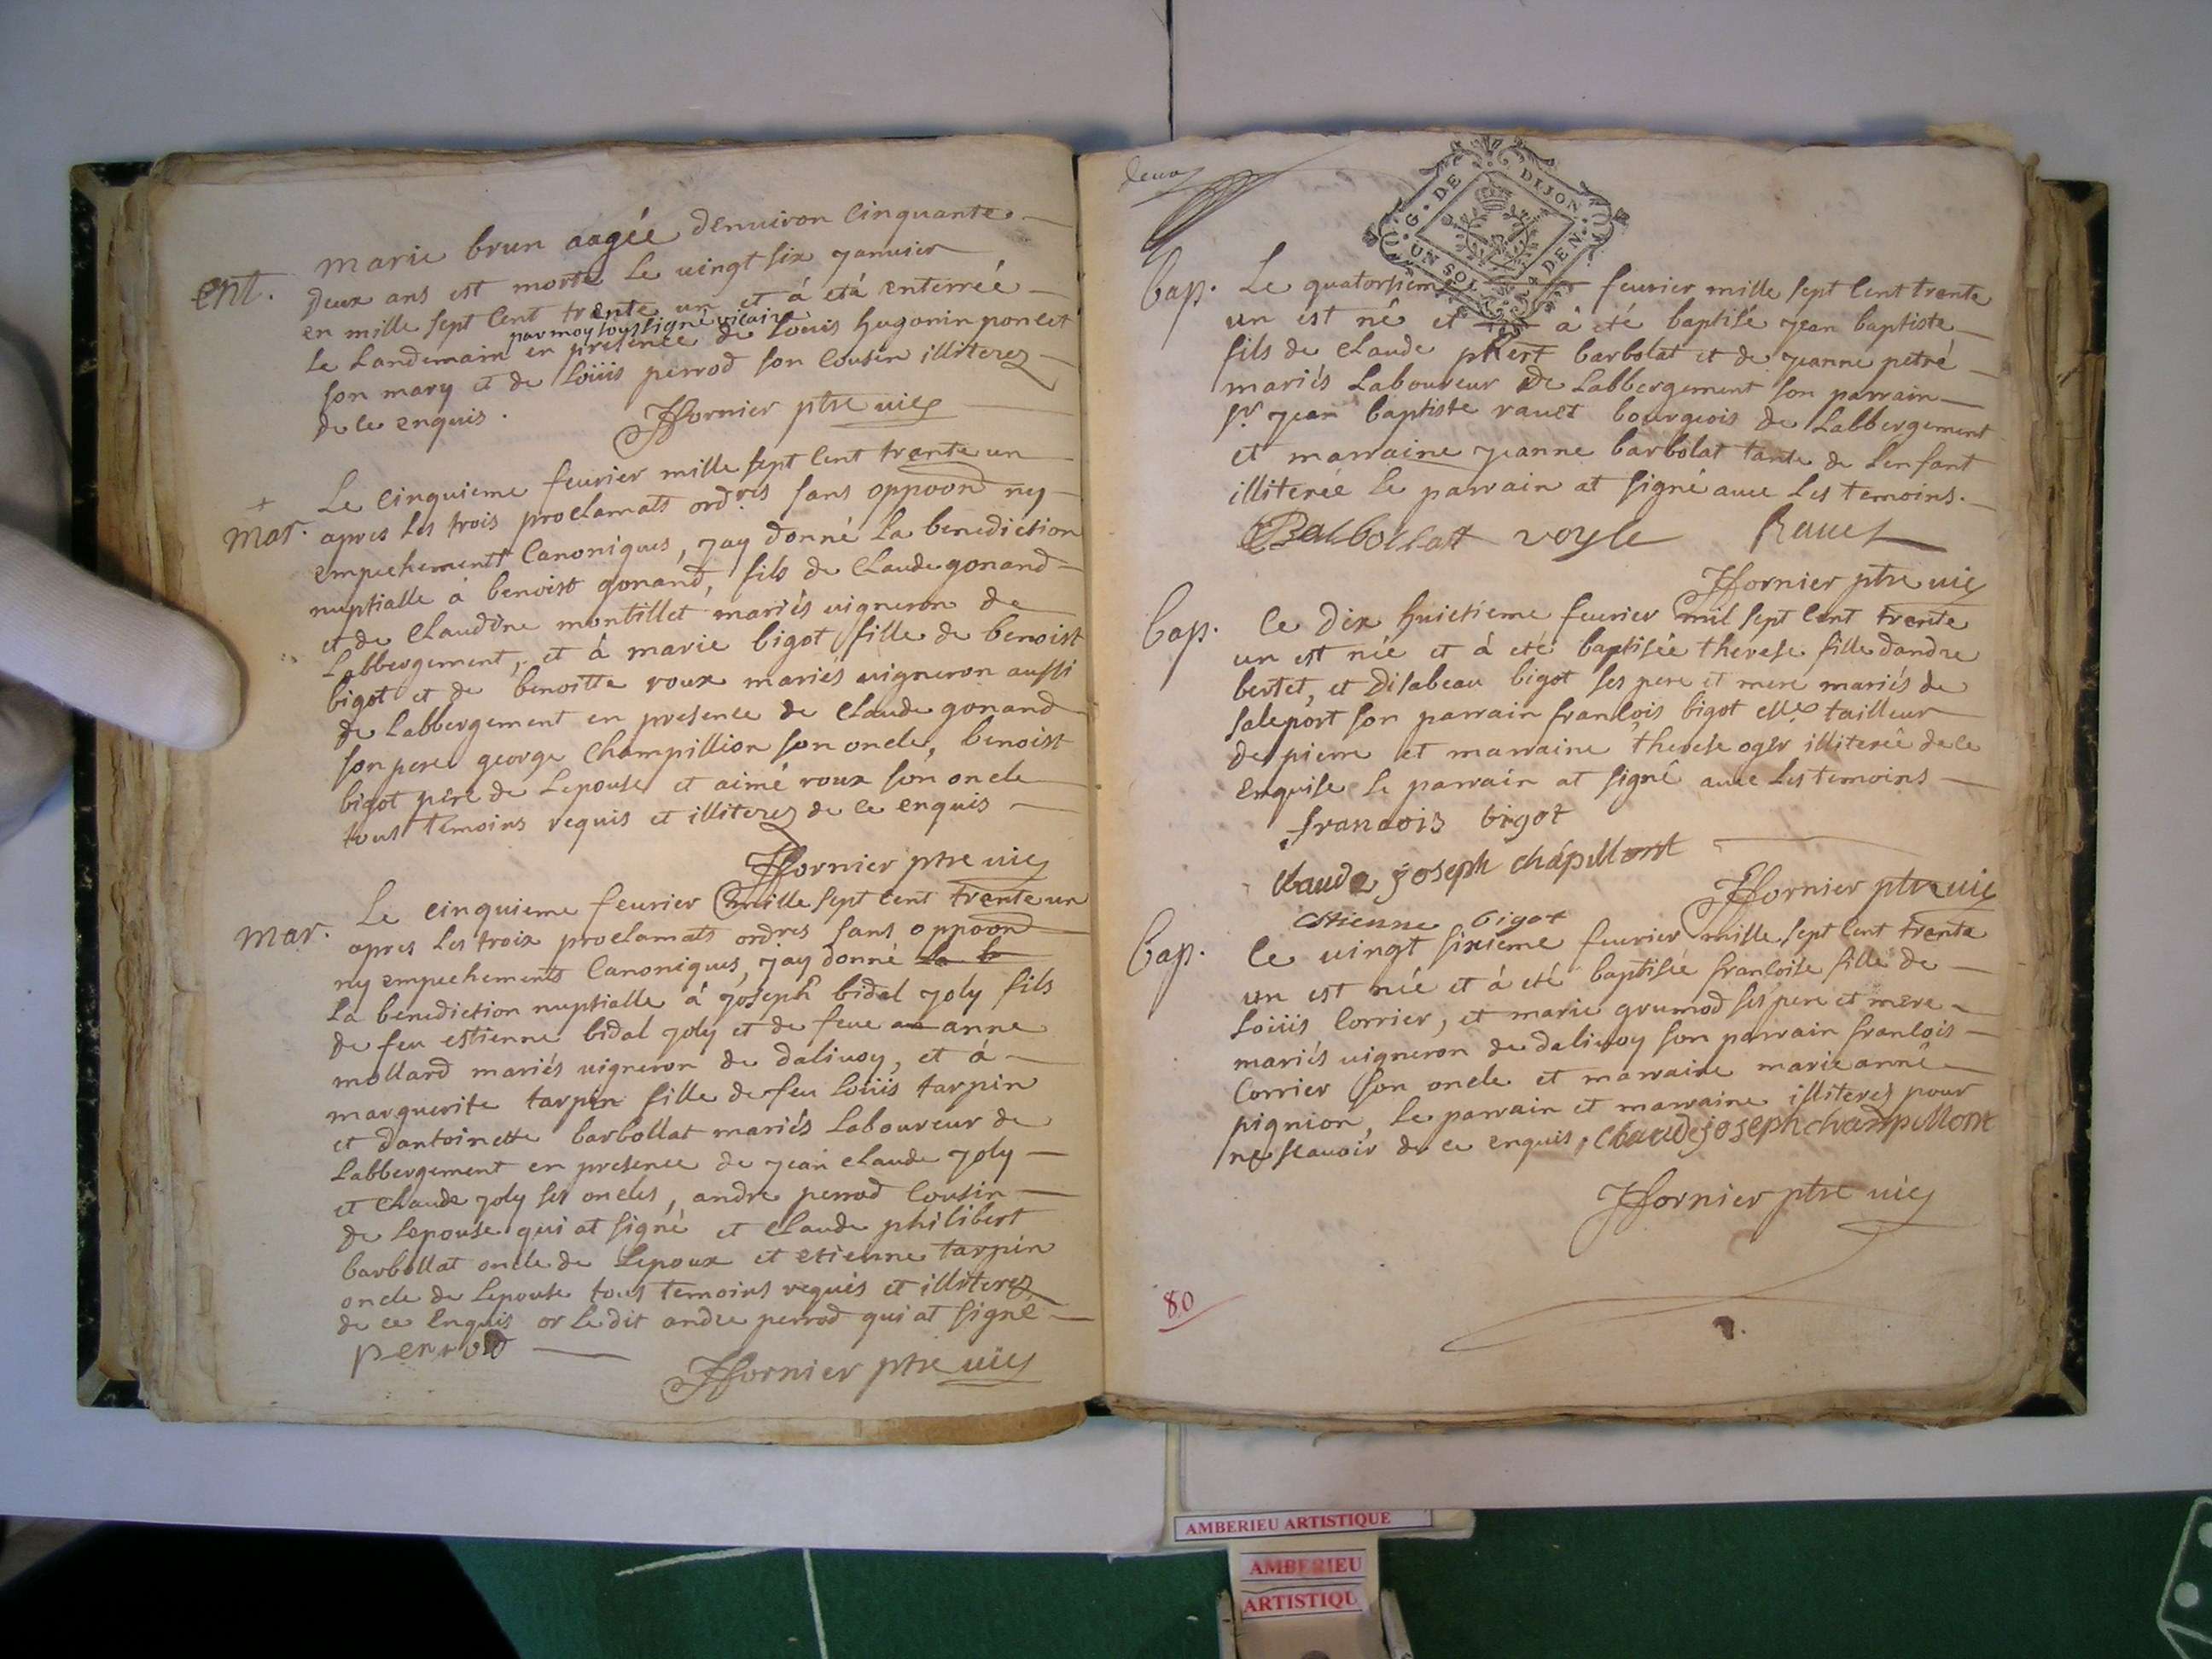 ent.
marie brun aagée denuiron cinquante
deux ans est morte le uingt six januier
en mille sept cent trente un et á eté enterrée
par moy soussigné vicaire
le landemain en presence de Louis hugonin poncet
son mary et de Loüis perrod son cousin illiterez
de ce enquis.
Jfornier ptre uic
+
mar.
Le cinquieme feurier mille sept cent trente un
apres les trois proclamats ord.res sans oppoon ny
empechements canoniques, jay donné la benediction
nuptialle á benoist gonand, fils de claude gonand
et de claudine montillet mariés uigneron de
Labbergement, et á marie bigot fille de benoist
bigot et de benoitte roux mariés uigneron aussi
de Labbergement en presence de claude gonand
son pere george champillion son oncle, benoist
bigot pere de Lepouse et aimé roux son oncle
tous temoins requis et illiterez de ce enquis
Jfornier ptre uic
mar.
Le cinquieme feurier mille sept cent trente un
apres les trois proclamats ordres sans oppoon
ny empechements canoniques, jay donné la b
la benediction nuptialle á joseph bidal joly fils
de feu estienne bidal joly et de feue an anne
mollard mariés uigneron de daliuoy, et á
marguerite tarpin fille de feu Loüis tarpin
et dantoinette barbollat mariés Laboureur de
Labbergement en presence de jean claude joly
et claude joly ses oncles, andre perrod cousin
de lepouse qui at signé et claude philibert
barbollat oncle de Lepoux et etienne tarpin
oncle de Lepouse tous temoins requis et illiterez
de ce enquis or le dit andre perrod qui at signé
perrod
Jfornier ptre uic
deux
G. DE DIJON.
UN SOL 4 DEN.
bap.
Le quatorsiem feurier mille sept cent trente
un est né et á eté baptisé jean baptiste
fils de claude phert barbolat et de jeanne petré
mariés Laboureur de Labbergement son parrain
sr. jean baptiste rauet bourgeois de Labbergement
et marraine jeanne barbolat tante de Lenfant
illiterée le parrain at signé auec les temoins.
Balbollatt voyle Rauet
Jfornier ptre uic
bap.
le dix huictieme feurier mil sept cent trente
un est née et á eté baptisée therese fille dandre
bertet, et disabeau bigot ses pere et mere mariés de
saleport son parrain francois bigot tailleur
de pierre et marraine therese oger illiterée de ce
enquise le parrain at signé auec les temoins
francois bigot
claude joseph chápillont
Jfornier ptre uic
etienne bigot
bap.
le uingt sixieme feurier mille sept cent trente
un est née et á eté baptisée francoise fille de
Loüis corrier, et marie grumod ses pere et mere
mariés uigneron de daliuoy son parrain francois
corrier son oncle et marraine marie anne
pignion, Le parrain et marraine illiterez pour
ne scauoir de ce enquis, claude joseph champillont
Jfornier ptre uic
80
AMBERIEU ARTISTIQUE
AMBERIEU
ARTISTIQU